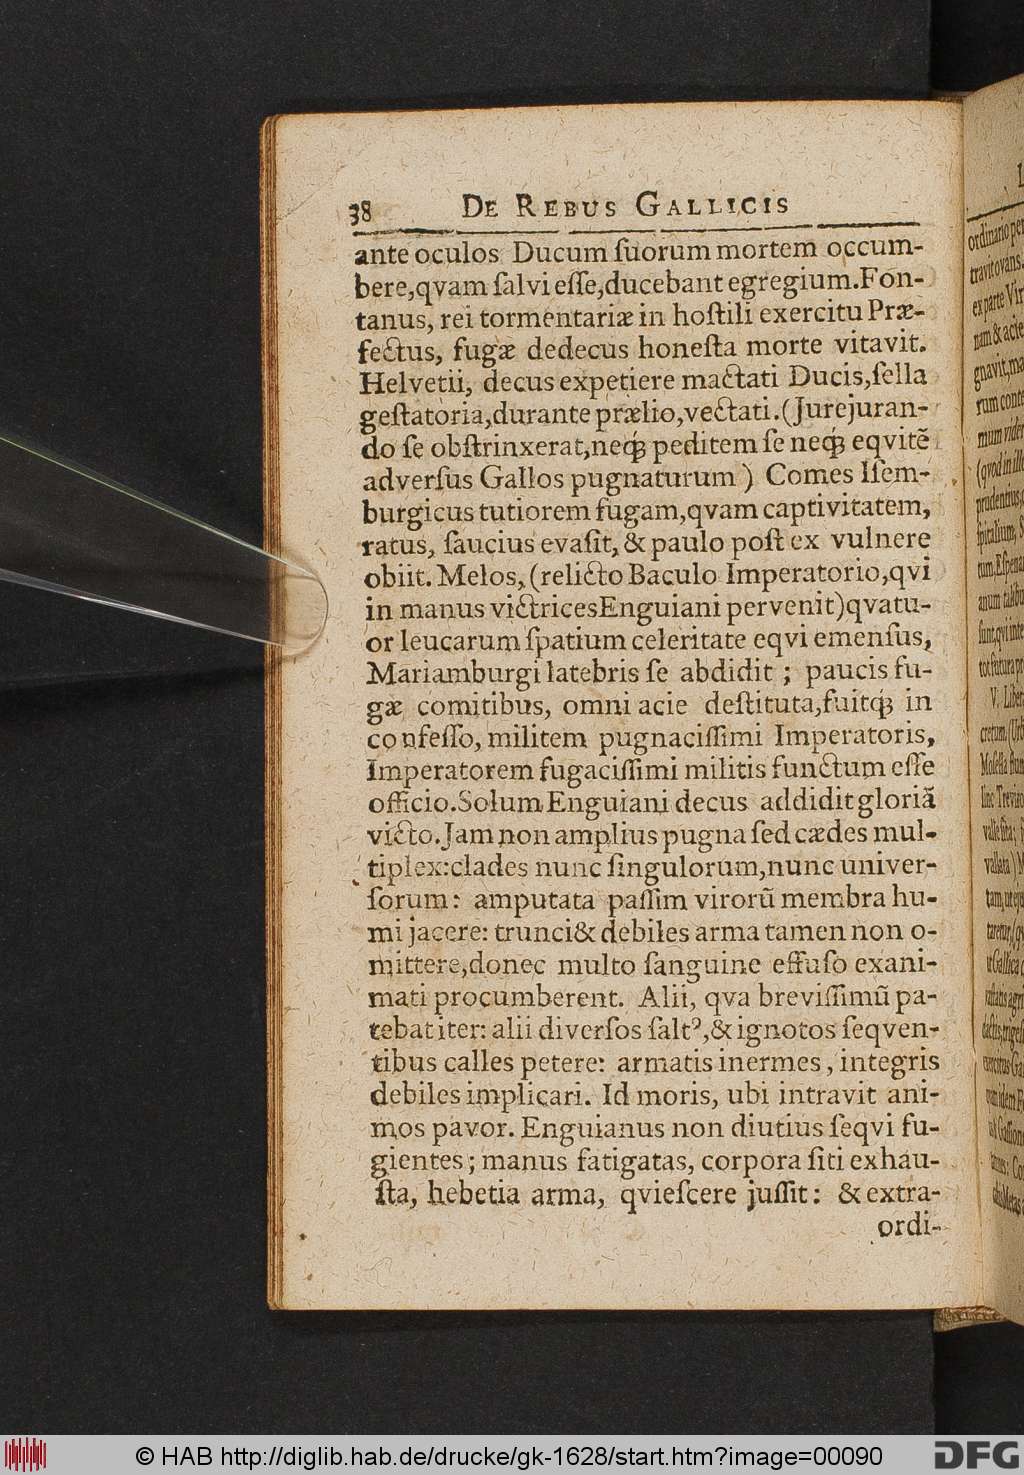 38 DE REBUS GALLICIS
ante oculos Ducum ſuorum mortem occum-
bere,qvam ſalvi eſſe,ducebant egregium.Fon-
tanus, rei tormentariæ in hoſtili exercitu Præ-
fectus, fugæ dedecus honeſta morte vitavit.
Helvetii, decus expetiere mactati Ducis,ſella
geſtatoria,durante prælio,vectati.(Jurejuran-
do ſe obſtrinxerat,neq́; peditem ſe neq́; eqvitẽ
adverſus Gallos pugnaturum) Comes Iſem-
burgicus tutiorem fugam,qvam captivitatem,
ratus, ſaucius evaſit, & paulo poſt ex vulnere
obiit. Melos, (relicto Baculo Imperatorio,qvi
in manus victricesEnguiani pervenit)qvatu-
or leucarum ſpatium celeritate eqvi emenſus,
Mariamburgi latebris ſe abdidit ; paucis fu-
gæ comitibus, omni acie deſtituta,fuitq́; in
confeſſo, militem pugnaciſſimi Imperatoris,
Imperatorem fugaciſſimi militis functum eſſe
officio.Solum Enguiani decus addidit gloriã
victo.Jam non amplius pugna ſed cædes mul-
tiplex:clades nunc ſingulorum,nunc univer-
ſorum: amputata paſſim virorũ membra hu-
mi jacere: trunci& debiles arma tamen non o-
mittere,donec multo ſanguine effuſo exani-
mati procumberent. Alii, qva breviſſimũ pa-
tebat iter: alii diverſos ſaltꝰ,& ignotos ſeqven-
tibus calles petere: armatis inermes, integris
debiles implicari. Id moris, ubi intravit ani-
mos pavor. Enguianus non diutius ſeqvi fu-
gientes; manus fatigatas, corpora ſiti exhau-
ſta, hebetia arma, qvieſcere juſſit: & extra-
ordi-
ordinario
travit ovans.
ex parte Vir
nam & acie
gnavit,
rum
mum
prudentius,
V.
© HAB http://diglib.hab.de/drucke/gk-1628/start.htm?image=00090
DFG